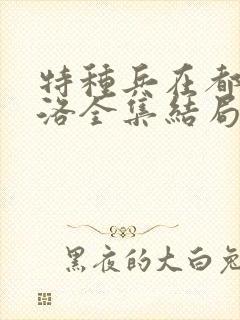 特種兵在都
洛全集結局
黑夜的大白兔